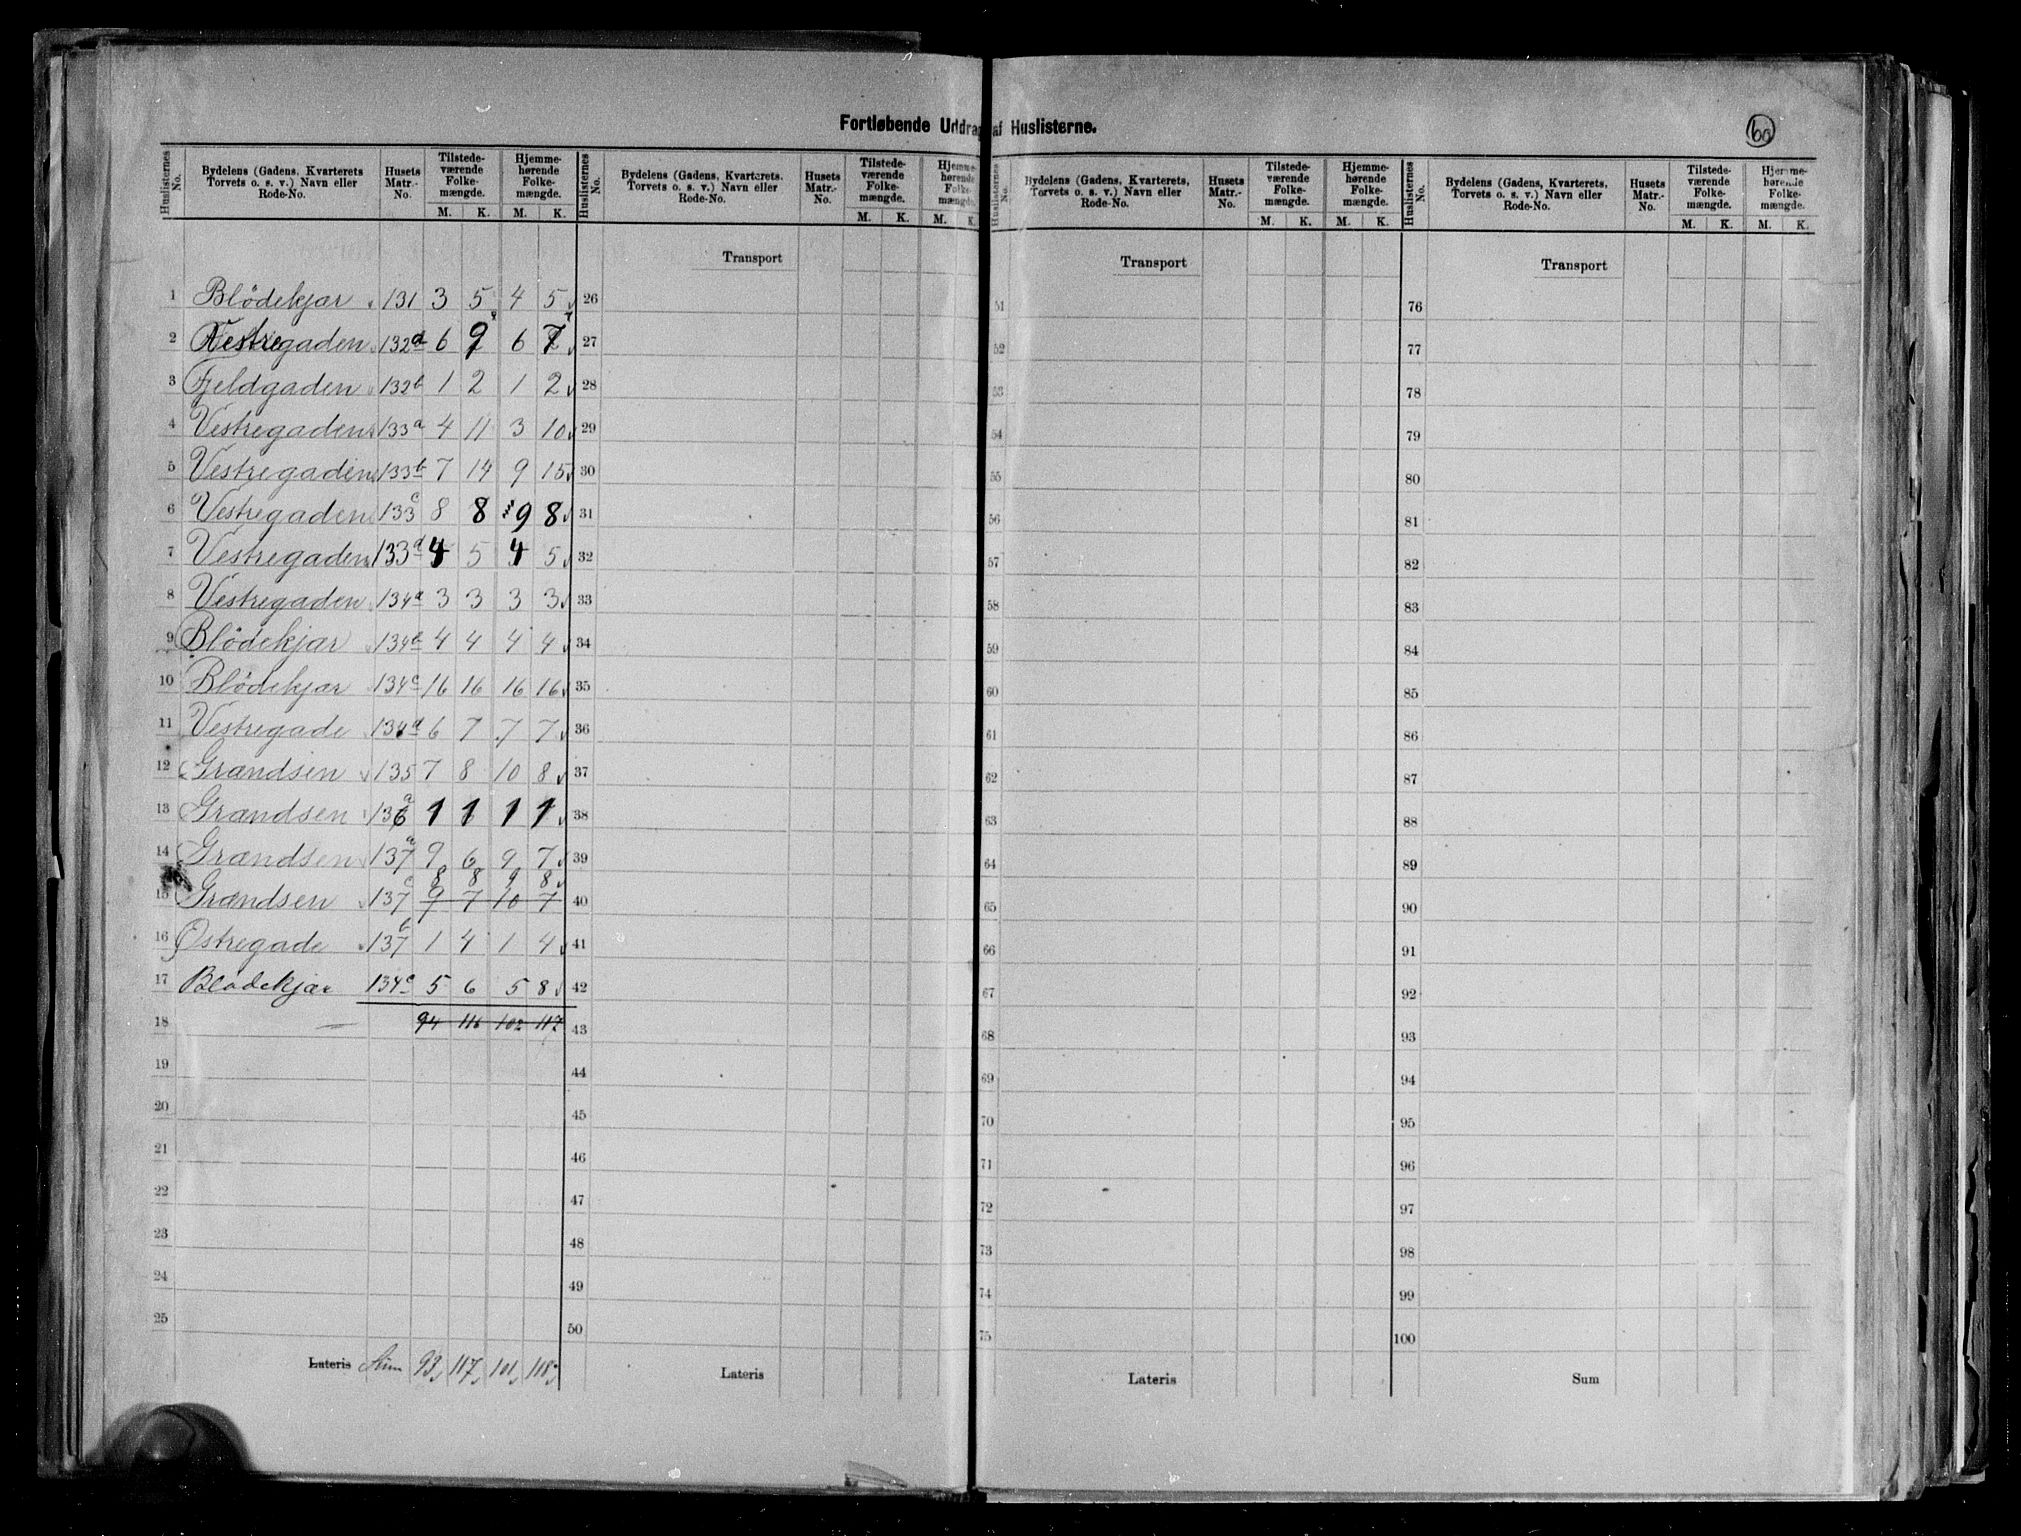 Fortløbende Uddrag af Huslisterne.
60
Huslisternes No. | Bydelens (Gadens, Kvarterets, Torvets o. s. v.) Navn eller Rode-No. | Husets Matr.-No. | Tilstedeværende Folkemængde. M. K. | Hjemmehørende Folkemængde. M. K.
Huslisternes No. | Bydelens (Gadens, Kvarterets, Torvets o. s. v.) Navn eller Rode-No. | Husets Matr.-No. | Tilstedeværende Folkemængde. M. K. | Hjemmehørende Folkemængde. M. K.
Huslisternes No. | Bydelens (Gadens, Kvarterets, Torvets o. s. v.) Navn eller Rode-No. | Husets Matr.-No. | Tilstedeværende Folkemængde. M. K. | Hjemmehørende Folkemængde. M. K.
Huslisternes No. | Bydelens (Gadens, Kvarterets, Torvets o. s. v.) Navn eller Rode-No. | Husets Matr.-No. | Tilstedeværende Folkemængde. M. K. | Hjemmehørende Folkemængde. M. K.
Transport Transport Transport
1 Blödekjær 131 3 5 4 5 26 51 76
2 Vestregaden 132a 6 9 6 7 27 52 77
3 Fjeldgaden 132b 1 2 1 2 28 53 78
4 Vestregaden 133a 4 11 3 10 29 54 79
5 Vestregaden 133b 7 14 9 15 30 55 80
6 Vestregaden 133c 8 8 9 8 31 56 81
7 Vestregaden 133d 4 5 4 5 32 57 82
8 Vestregaden 134a 3 3 3 3 33 58 83
9 Blödekjær 134b 4 4 4 4 34 59 84
10 Blödekjær 134c 16 16 16 16 35 60 85
11 Vestregade 134d 6 7 7 7 36 61 86
12 Grændsen 135 7 8 10 8 37 62 87
13 Grændsen 136a 1 1 1 1 38 63 88
14 Grændsen 137a 9 6 9 7 39 64 89
8 8 9 8
15 Grændsen 137c 9 7 10 7 40 65 90
16 Østregade 137b 1 4 1 4 41 66 91
17 Blødekjær 134e 5 6 5 8 42 67 92
18 — 94 116 102 117 43 68 93
19 44 69 94
20 45 70 95
21 46 71 96
22 47 72 97
23 48 73 98
24 49 74 99
25 50 75 100
Lateris Sum 93 117 101 118 Lateris Lateris Sum